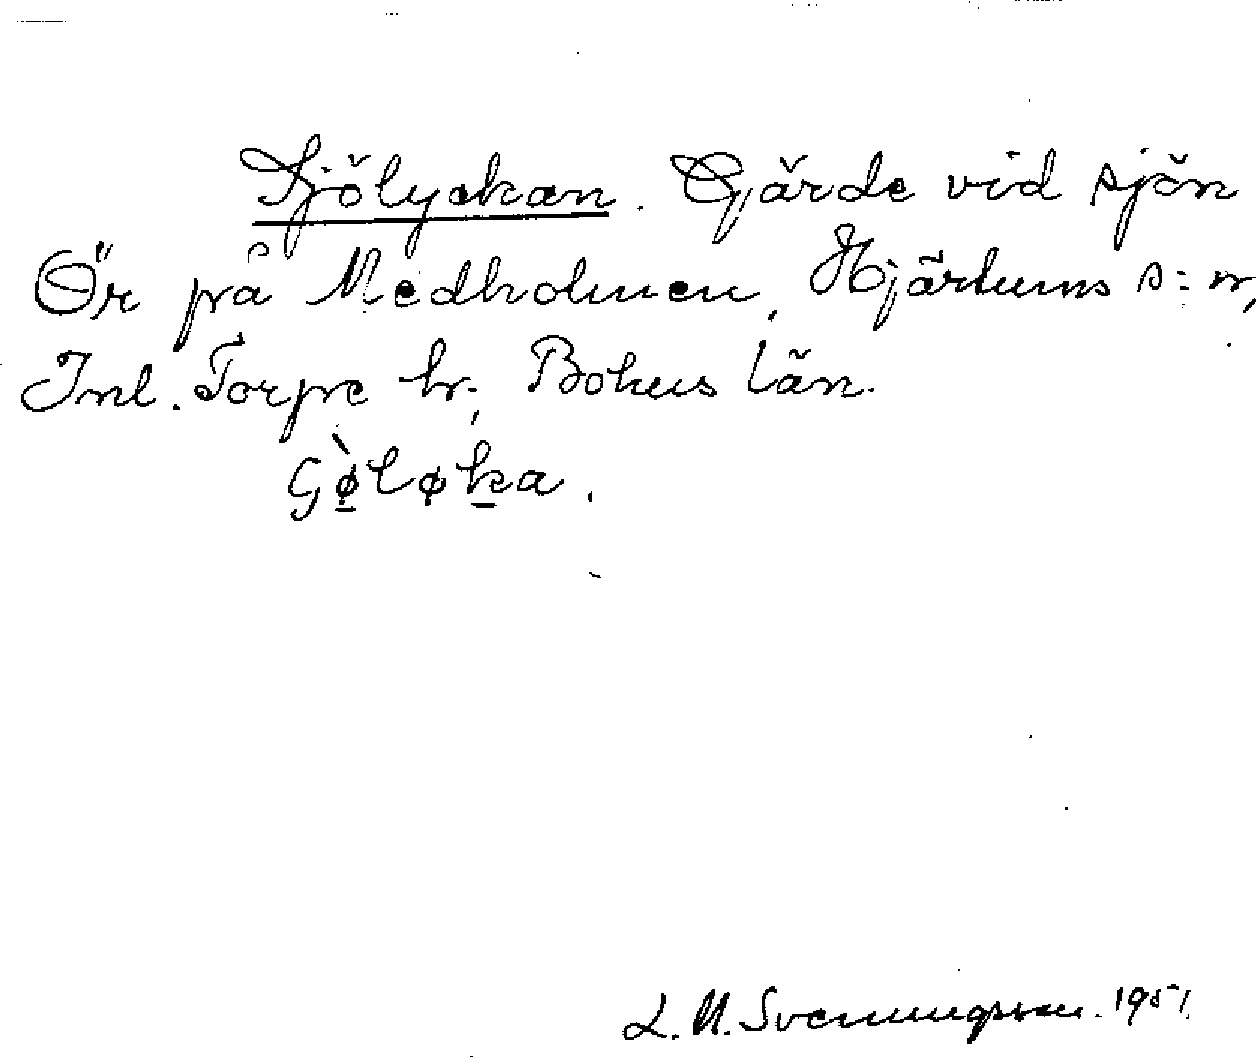 Sjölyckan. Gärde vid sjön
Ör på Medholmen, Hjärtums s:n,
Inl. Torpe hr, Bohus län.
L. M. Svenningsson. 1951.